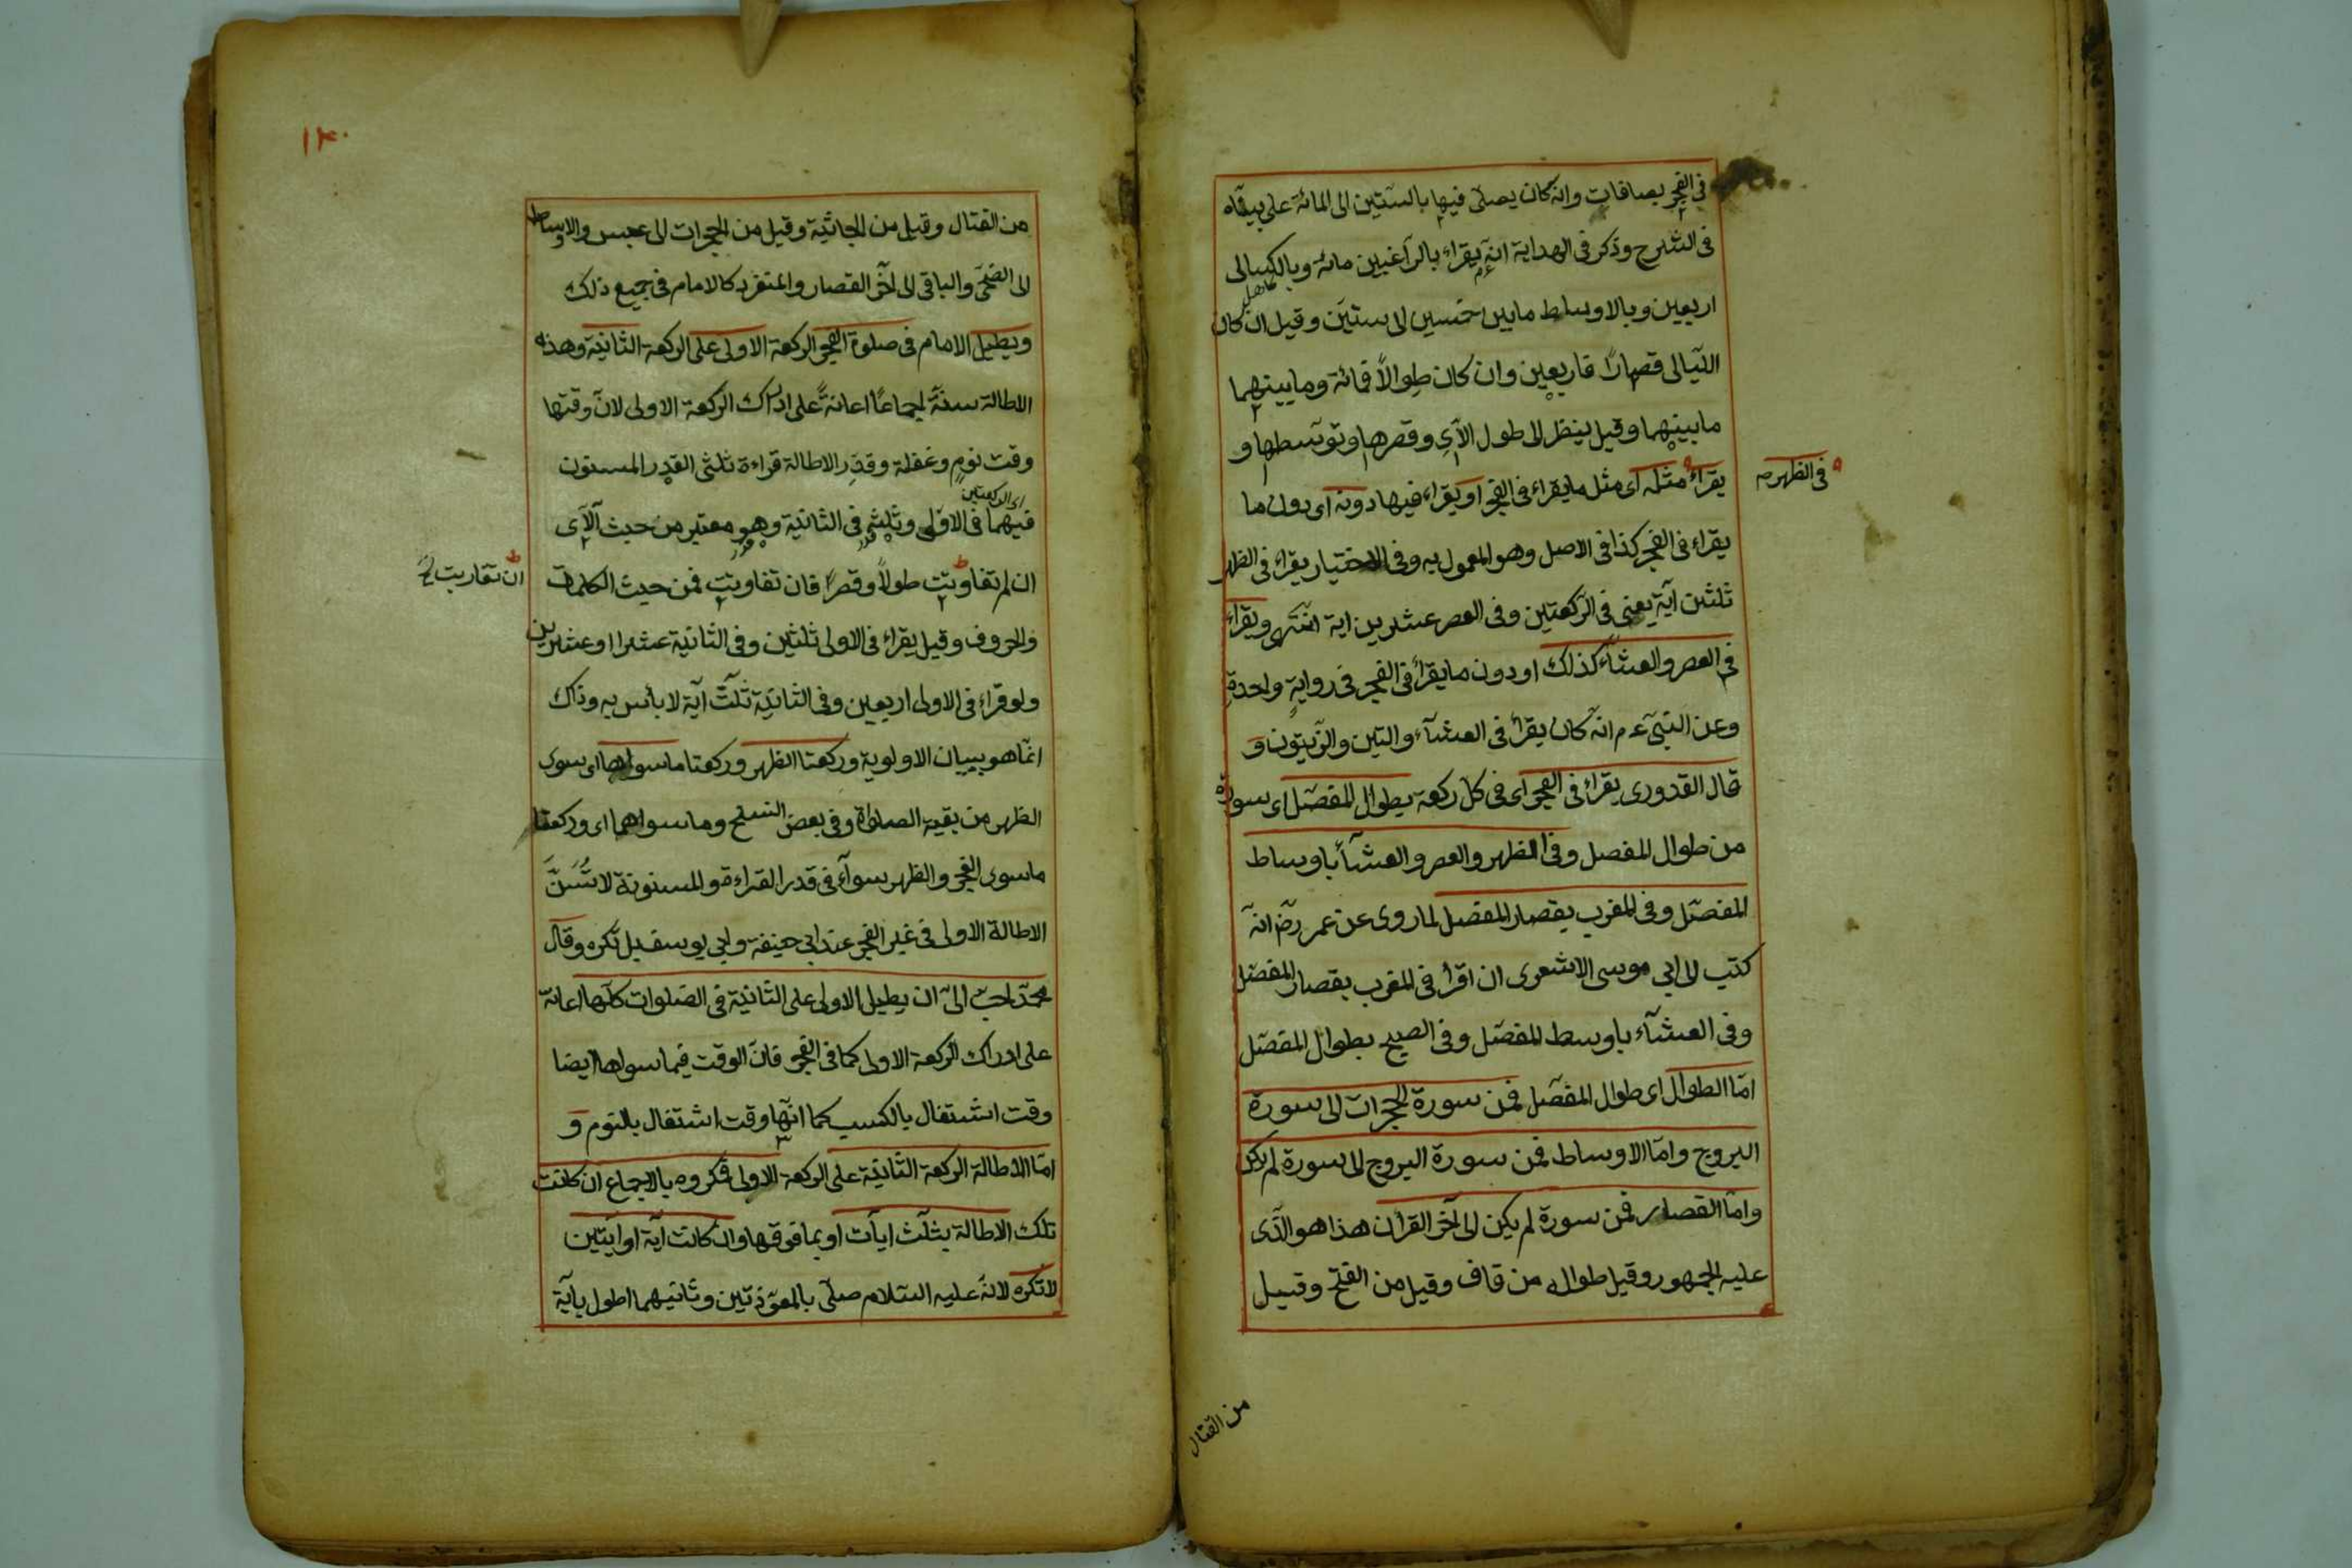 فى الفجر بصافات وانه كان يصلى فيها بالستين الى المائة على بيناه
فى الشرح وذكر فى الهداية انه يقراء بالراغبين مائة وبالكسالى
اربعين وبالاوساط مابين خمسين الى ستين وقيل ان كان
الليالى قصارا فاربعين وان كان طوالا فمائة ومابينهما
مابينهما وقيل ينظر الى طول الآى وقصرها وتوسطها و
يقراء مثله اى مثل مايقراء فى الفجر او يقراء فيها دونه اى دون ما
فى الظهر صح
يقراء فى الفجر كذا فى الاصل وهو المعمول به وفى الاختيار يقراء فى الظهر
ثلثين آية يعنى فى الركعتين وفى العصر عشرين اية انتهى ويقراء
فى العصر والعشاء كذلك او دون مايقراء فى الفجر فى رواية واحدة
وعن النبى ءم انه كان يقرأ فى العشآء والتين والزيتون و
قال القدورى يقراء فى الفجر اى فى كل ركعة بطوال المفصل اى سورة
من طوال المفصل وفى الظهر والعصر والعشاء باوساط
المفصل وفى المغرب بقصار المفصل لما روى عن عمر رض انه
كتب الى ابى موسى الاشعرى ان اقرأ فى المغرب بقصار المفصل
وفى العشآء باوسط المفصل وفى الصبح بطوال المفصل
امّا الطوال اى طوال المفصل فمن سورة الحجرات الى سورة
البروج وامّا الاوساط فمن سورة البروج الى سورة لم يكن
وامّا القصار فمن سورة لم يكن الى آخر القرآن هذا هو الذى
عليه الجمهور وقيل طواله من قاف وقيل من الفتح وقيل
من القتال
١٣٠
من القتال وقيل من الجاثية وقيل من الحجرات الى عبس والاوساط
الى الضحى والباقى الى آخر القصار والمنفرد كالامام فى جميع ذلك
ويطيل الامام فى صلوة الفجر الركعة الاولى على الركعة الثانية وهذه
الاطالة سنة اجماعا اعانة على ادراك الركعة الاولى لانّ وقتها
وقت نوم وغفلة وقدر الاطالة قراءة ثلثى القدر المسنون
اى الركعتين
فيهما فى الاولى وثلثه فى الثانية وهو معتبر من حيث الآى
ان لم تفاوتت طولا وقصرا فان تفاوتت فمن حيث الكلمات
ان تقاربت
والحروف وقيل يقراء فى الاولى ثلثين وفى الثانية عشرا او عشرين
ولو قراء فى الاولى اربعين وفى الثانية ثلث آية لا بأس به وذاك
انما هو ببيان الاولوية وركعتا الظهر وركعتا ما سواها اى سوى
الظهر من بقية الصلواة وفى بعض النسخ وما سواهما اى وركعتا
ما سوى الفجر والظهر سوآء فى قدر القراءة والمسنونة لا تسن
الاطالة الاولى فى غير الفجر عند ابى حنيفة وابى يوسف بل تكره وقال
محمد احب الىّ ان يطيل الاولى على الثانية فى الصلوات كلها اعانة
على ادراك الركعة الاولى كما فى الفجر فانّ الوقت فيما سواها ايضا
وقت اشتغال بالكسب كما انها وقت اشتغال بالنوم و
امّا الاطالة الركعة الثانية على الركعة الاولى فمكروه بالاجماع ان كانت
تلك الاطالة بثلث ايآت او بما فوقها وان كانت آية او آيتين
لا تكره لانه عليه السلام صلى بالمعوّذتين وثانيهما اطول بآية